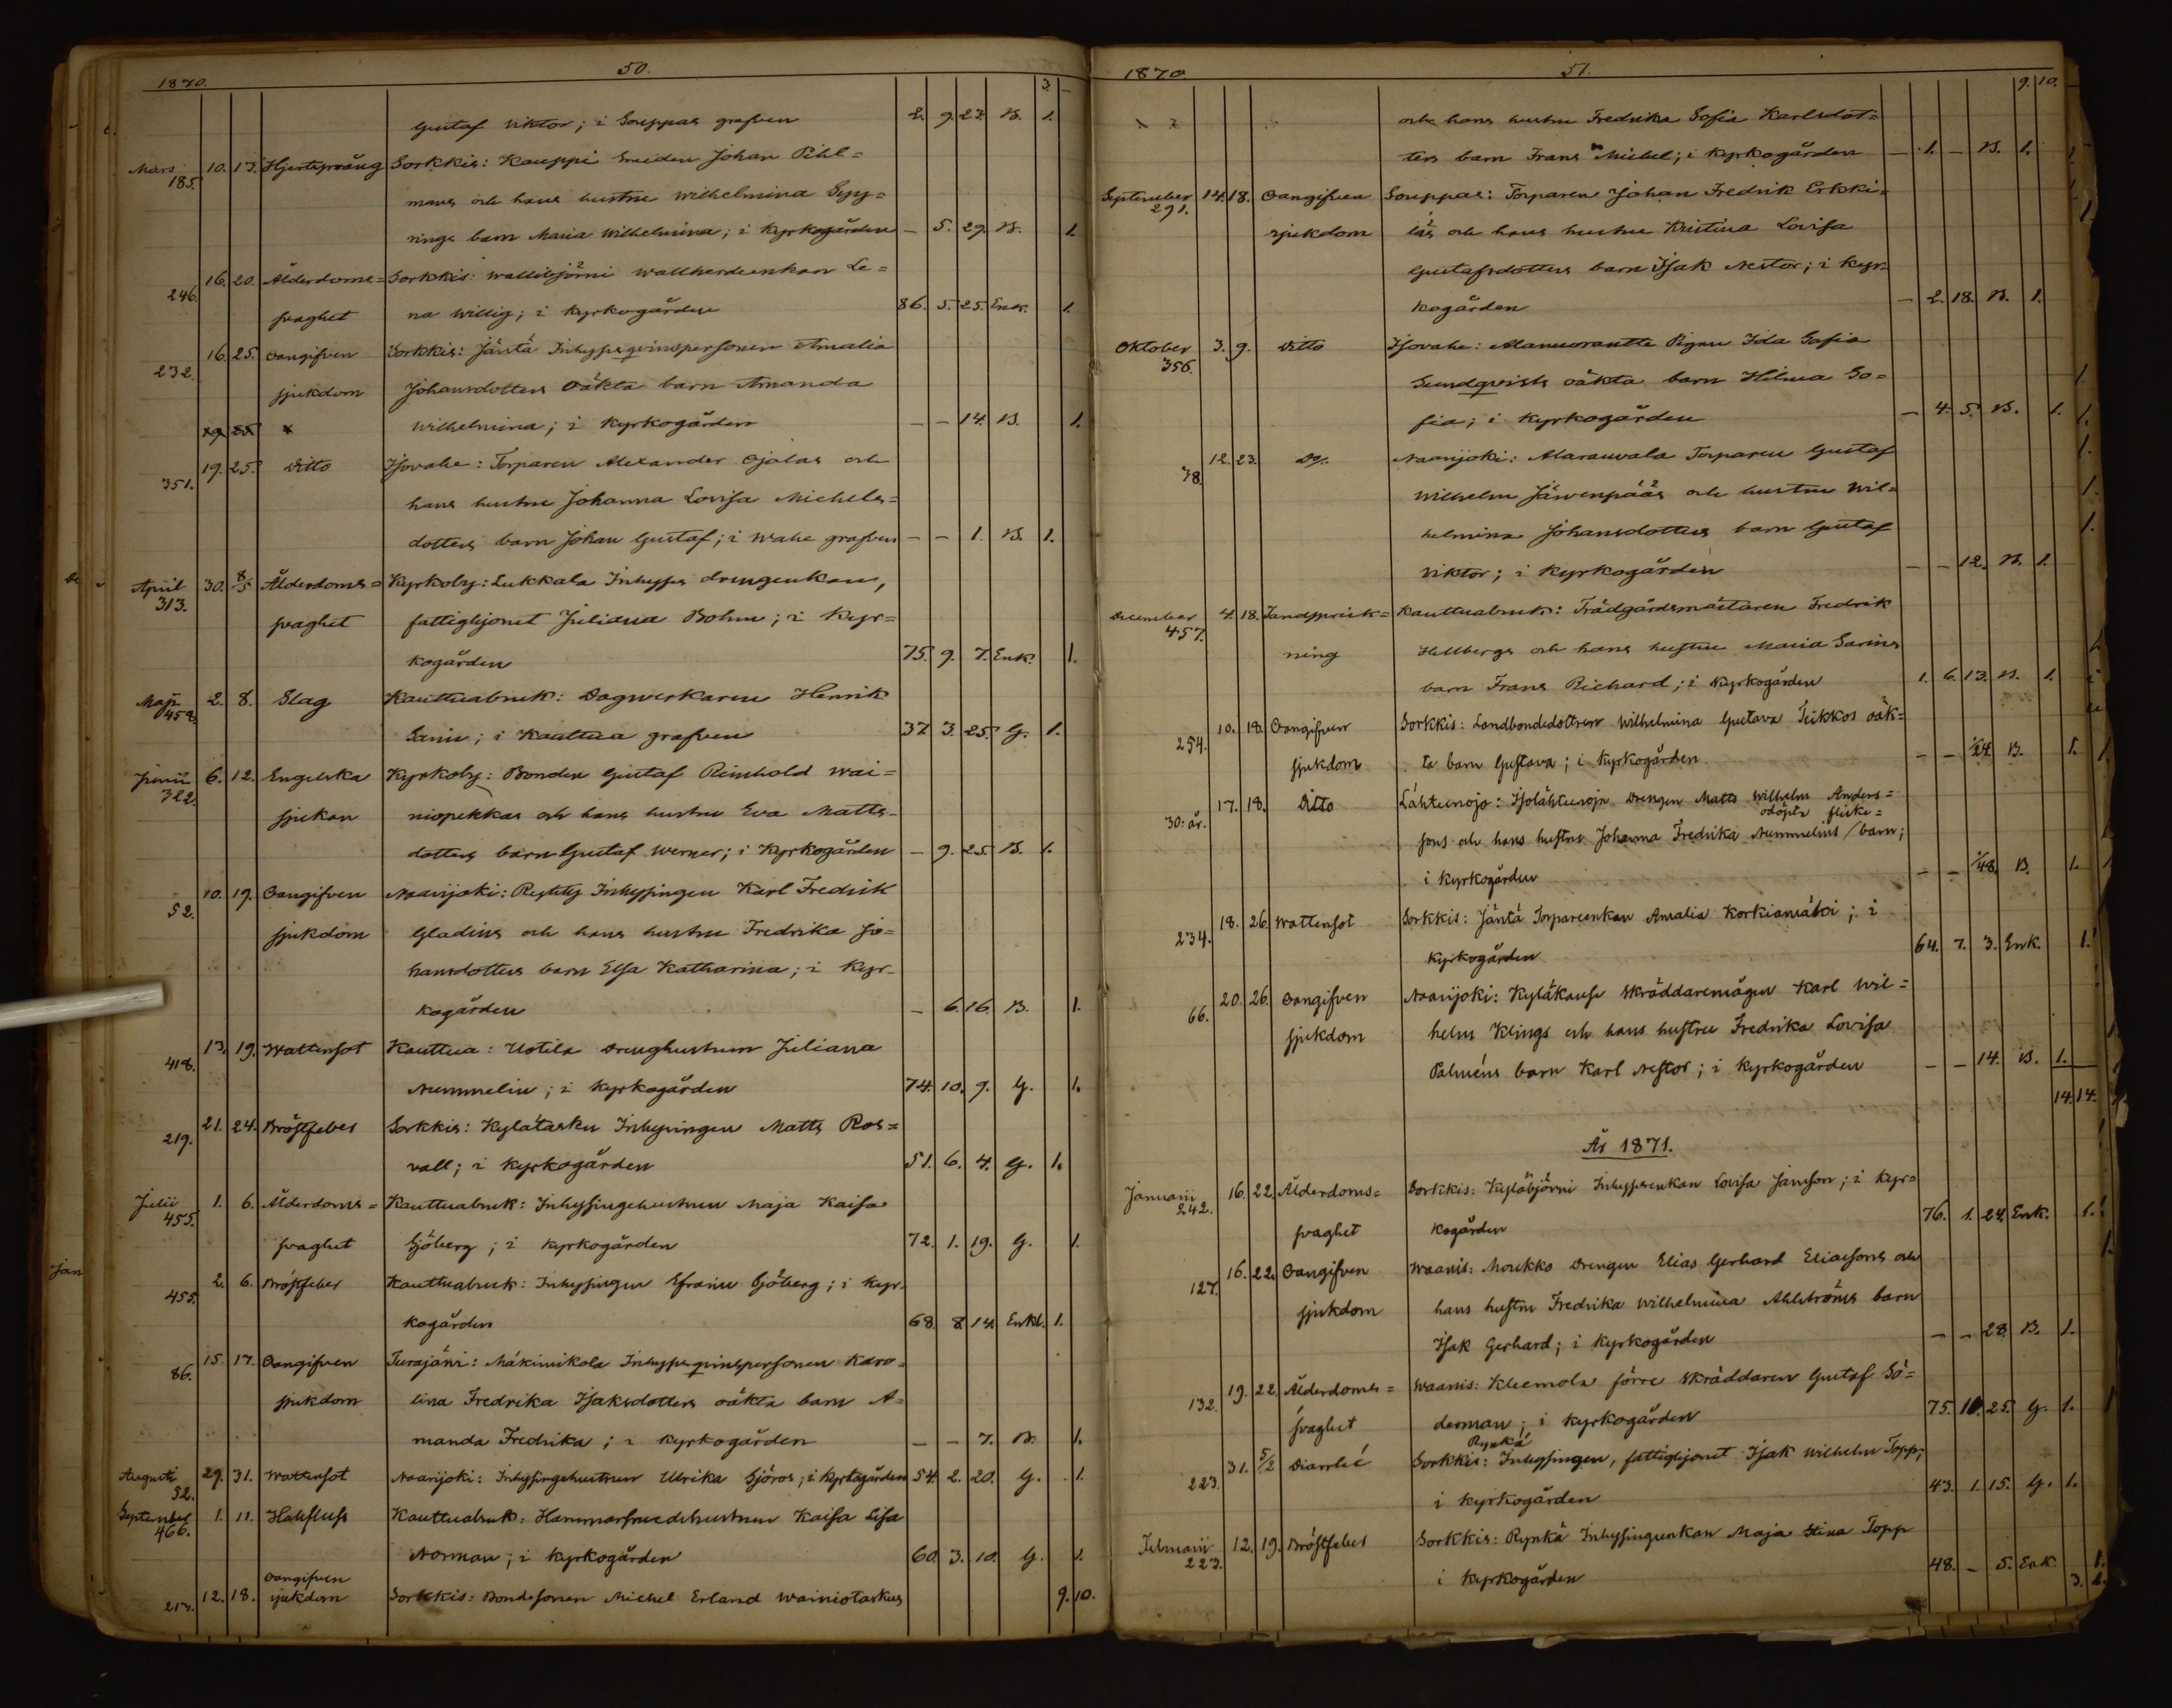 1870. 50. 3. –
Gustaf Viktor; i Souppas grafven 2. 9. 27. B. 1.
Mars 185. 10. 13. Hjertsprång Sorkkis: Kauppi Smeden Johan Pihl=
mans och hans hustru Wilhelmina
rings barn Maria Wilhelmina; i Kyrkogården – 5. 29. B. 1.
246. 16. 20. Ålderdoms= Sorkkis: Wallibjörni Wallherdeenkan Le=
svaghet na Willig; i Kyrkogården 86. 5. 25. Enk. 1.
232. 16. 25. Oangifven Sorkkis: Jäntä Inhysesqvinspersonen Amalia
sjukdom Johansdotters Oäkta barn Amanda
Wilhelmina; i Kyrkogården – – 14. B. 1.
351. 19. 25. Ditto Isovahe: Torparen Alexander Ojalas och
hans hustru Johanna Lovisa Michels=
dotters barn Johan Gustaf; i Wahe grafven – – 1. B. 1.
April 313. 30. 8/5 Ålderdoms= Kyrkoby: Lukkala Inhyses drengenkan,
svaghet fattighjonet Juliana Bohm; i Kyr=
kogården 75. 9. 7. Enk. 1.
Maji 458. 2. 8. Slag Kauttuabruk: Dagverkaren Henrik
Sanin; i Kauttua grafven 37 3. 25. G. 1.
Junii 322. 6. 12. Engelska Kyrkoby: Bonden Gustaf Reinhold Wai=
sjukan niopekkas och hans hustru Eva Matts=
dotters barn Gustaf Werner; i Kyrkogården – 9. 25. B. 1.
52. 10. 19. Oangifven Naarijoki: Inhysingen Karl Fredrik
sjukdom Gladins och hans hustru Fredrika Jo=
hansdotters barn Elsa Katharina; i Kyr=
kogården – 6. 16. B. 1.
418. 13. 19. Wattensot Kauttua: Uotila Drenghustrun Juliana
Nummelin; i Kyrkogården 74. 10. 9. G. 1.
219. 21. 24. Bröstfeber Sorkkis: Kylätasku Inhysingen Matts Ros=
vall; i Kyrkogården 51. 6. 4. G. 1.
Julii 455. 1. 6. Ålderdoms= Kauttuabruk: Inhysingehustrun Maja Kaisa
svaghet Sjöberg; i Kyrkogården 72. 1. 19. G. 1.
455. 2. 6. Bröstfeber Kauttuabruk: Inhysingen Efraim Sjöberg; i Kyr=
kogården 68. 8. 14. Enkl. 1.
86. 15. 17. Oangifven Turajärvi: Mäkimikola Inhysesqvinspersonen Karo=
sjukdom lina Fredrika Isaksdotters oäkta barn A=
manda Fredrika; i Kyrkogården – – 7. B. 1.
Augusti 52. 29. 31. Wattensot Naarijoki: Inhysingehustrun Ulrika Sjöros; i Kyrkogården 54. 2. 20. G. 1.
September 466. 1. 11. Halsfluss Kauttuabruk: Hammarsmedshustrun Kaisa Lisa
Norman; i Kyrkogården 60. 3. 10. G. 1.
217. 12. 18. Oangifven sjukdom Sorkkis: Bondesonen Michel Erland Wainiotaskus
9. 10.
1870 51. 9. 10.
och hans hustru Fredrika Sofia Karlsdot=
ters barn Frans Michel; i Kyrkogården – 1. – B. 1.
September 291. 14. 18. Oangifven Souppas: Torparen Johan Fredrik Erkki=
sjukdom läs och hans hustru Kristina Lovisa
Gustafsdotters barn Isak Nestor; i Kyr=
kogården – 2. 18. B. 1.
Oktober 356. 3. 9. Ditto Isovahe: Pigan Ida Sofia
Sundqvists oäkta barn Hilma So=
fia; i Kyrkogården – 4. 5. B. 1.
38. 12. 23. Do. Naarijoki: Torparen Gustaf
Wilhelm Järvenpääs och hustru Wil=
helmina Johansdotters barn Gustaf
Viktor; i Kyrkogården – – 12. B. 1.
December 457. 4. 18. Tandsprick= Kauttuabruk: Trädgårdsmästaren Fredrik
ning Hellbergs och hans hustru Maria Sarins
barn Frans Richard; i Kyrkogården 1. 6. 13. B. 1.
254. 10. 18. Oangifven Sorkkis: Landbondedottren Wilhelmina Gustava Tuikkos oäk=
sjukdom ta barn Gustava; i Kyrkogården – – 1/24. B. 1.
30: år. 17. 18. Ditto Lähteenoja: Isolähteenoja Drengen Matts Wilhelm Anders=
odöpta flicke=
sons och hans hustru Johanna Fredrika Nummelins / barn;
i Kyrkogården – – 1/48. B. 1.
234. 18. 26. Wattensot Sorkkis: Jäntä Torpareenkan Amalia Korkiamäki; i
Kyrkogården 64. 7. 3. Enk. 1.
66. 20. 26. Oangifven Naarijoki: Skräddaremågen Karl Wil=
sjukdom helm Klings och hans hustru Fredrika Lovisa
Palméns barn Karl Nestor; i Kyrkogården – – 14. B. 1.
14. 14.
År 1871.
Januarii 242. 16. 22. Ålderdoms= Sorkkis: Kyläbjörni Inhysesenkan Lovisa Jansson; i Kyr=
svaghet kogården 76. 1. 24. Enk. 1.
127. 16. 22. Oangifven Waanis: Moukko Drengen Elias Gerhard Eliassons och
sjukdom hans hustru Fredrika Wilhelmina Ahlströms barn
Isak Gerhard; i Kyrkogården – – 28. B. 1.
132. 19. 22. Ålderdoms= Waanis: Kleemola förre Skräddaren Gustaf Sö=
svaghet derman; i Kyrkogården 75. 10. 25. G. 1.
Rynkä
223. 31. 5/2 Diarrhé Sorkkis: Inhysingen, fattighjonet Isak Wilhelm Topp;
i Kyrkogården 43. 1. 15. G. 1.
Februarii 223. 12. 19. Bröstfeber Sorkkis: Rynkä Inhysingenkan Maja Stina Topp
i Kyrkogården 48. – 5. Enk. 1.
3. 2.
Jan